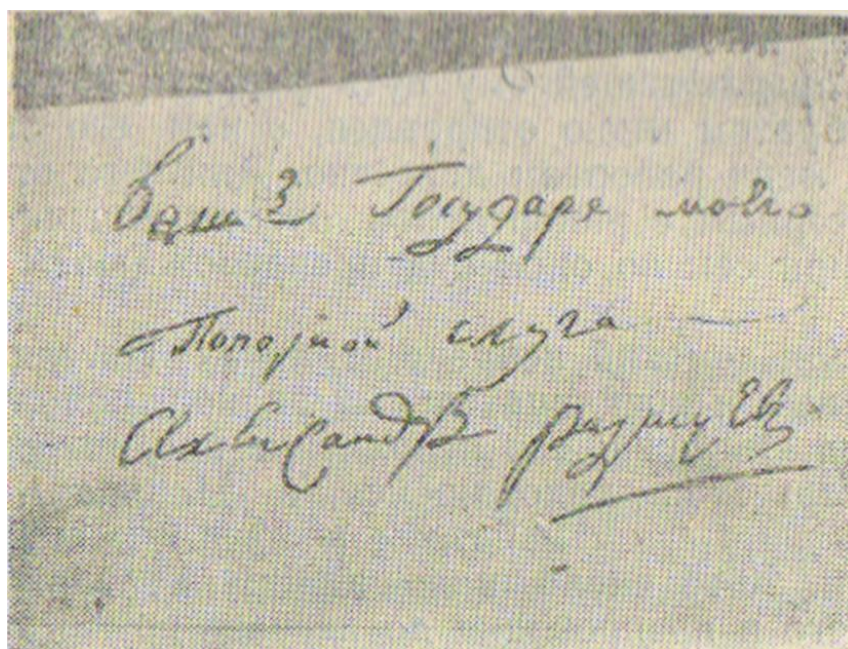 Вашъ Государя моего
Покорной слуга
Александръ Радищевъ